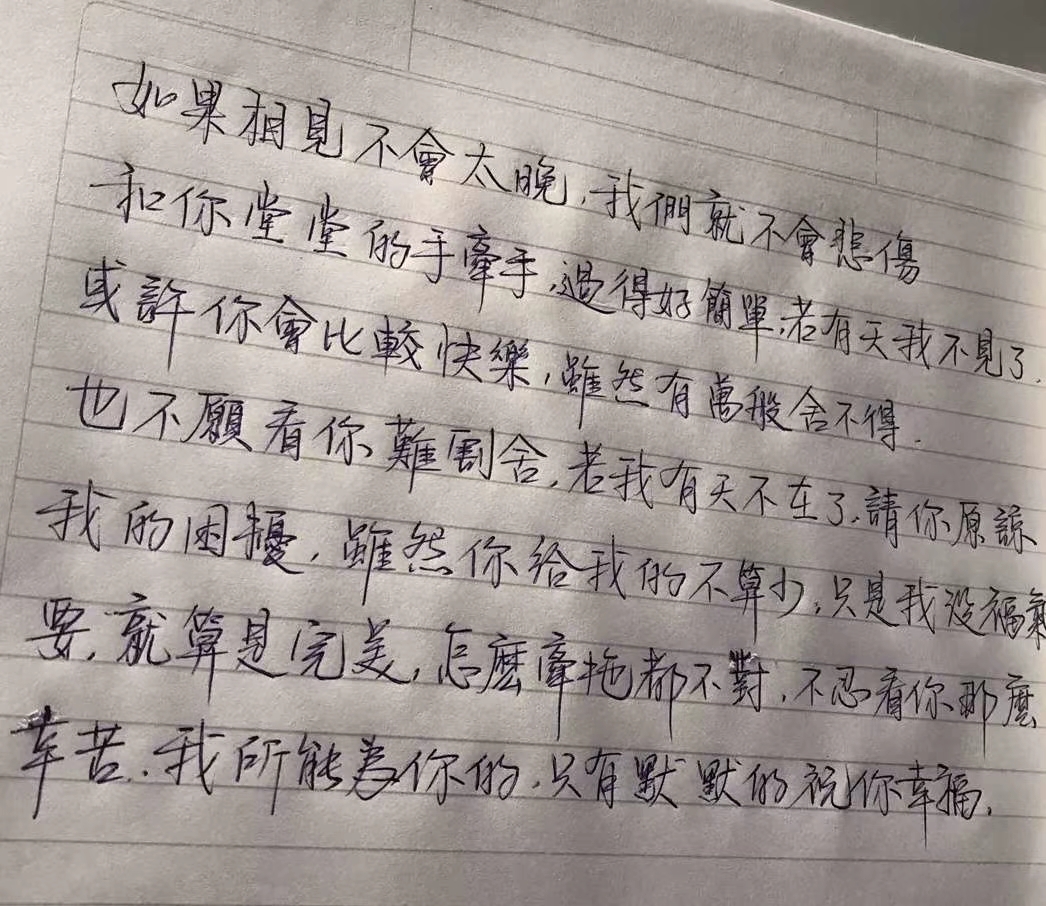 如果相見不會太晚,我們就不會悲傷
和你堂堂的手牽手,過得好簡單,若有天我不見了.
或許你會比較快樂,雖然有萬般舍不得.
也不願看你難割舍,若我有天不在了,請你原諒
我的困擾,雖然你給我的不算少,只是我沒福氣
要,就算是完美,怎麼牽拖都不對,不忍看你那麼
辛苦.我所能為你的,只有默默的祝你幸福.